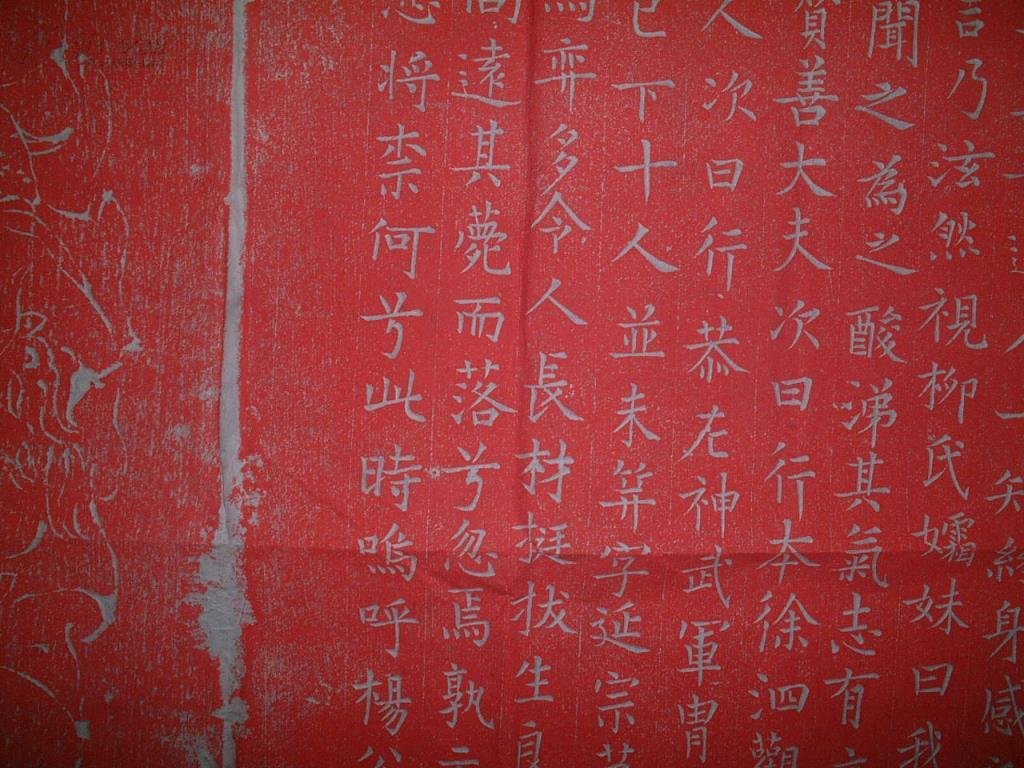 身感
言乃泫然視柳氏孀妹曰我
聞之為之酸涕其氣志有
質善大夫次曰行本徐泗觀
人次曰行恭左神武軍冑
已下十人並未笄字延宗
焉弈多令人長材挺拔生
間遠其薨而落兮忽焉孰
將柰何兮此時嗚呼楊公